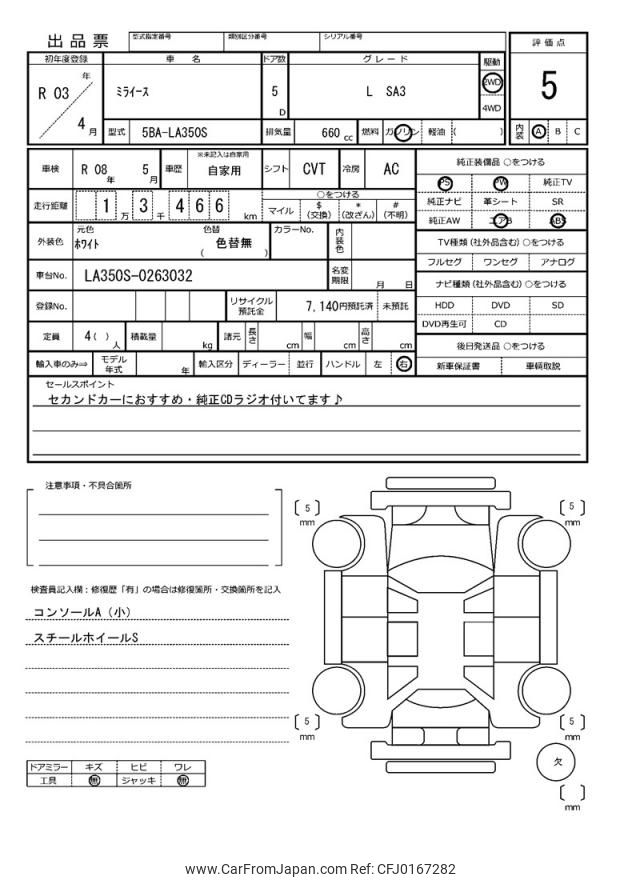 出品票
型式指定番号 類別区分番号 シリアル番号
評価点
5
初年度登録 車名 ドア数 グレード 駆動
R 03 年 ミライース 5 D L SA3 2WD
4WD
4 月 型式 5BA-LA350S 排気量 660 cc 燃料 ガソリン 軽油 ( )
内装 A B C
車検 R 08 年 5 月 車歴 ※未記入は自家用 自家用 シフト CVT 冷房 AC
純正装備品 ○をつける
PS PW 純正TV
走行距離 1 万 3 千 4 6 6 km ○をつける
マイル $ (交換) * (改ざん) # (不明)
純正ナビ 革シート SR
純正AW エアB ABS
外装色 元色 ホワイト 色替 ( 色替無 ) カラーNo. 内装色
TV種類 (社外品含む) ○をつける
フルセグ ワンセグ アナログ
車台No. LA350S-0263032 名変期限 月 日
ナビ種類 (社外品含む) ○をつける
登録No. リサイクル預託金 7,140円預託済 未預託
HDD DVD SD
DVD再生可 CD
定員 4( ) 人 積載量 kg 諸元 長さ cm 幅 cm 高さ cm
後日発送品 ○をつける
輸入車のみ⇒ モデル年式 年 輸入区分 ディーラー 並行 ハンドル 左 右
新車保証書 車輌取説
セールスポイント
セカンドカーにおすすめ・純正CDラジオ付いてます♪
注意事項・不具合箇所
5 mm
5 mm
検査員記入欄：修復歴「有」の場合は修復箇所・交換箇所を記入
コンソールA（小）
スチールホイールS
5 mm
5 mm
ドアミラー キズ ヒビ ワレ
工具 無 ジャッキ 無
欠
mm
www.CarFromJapan.com Ref: CFJ0167282